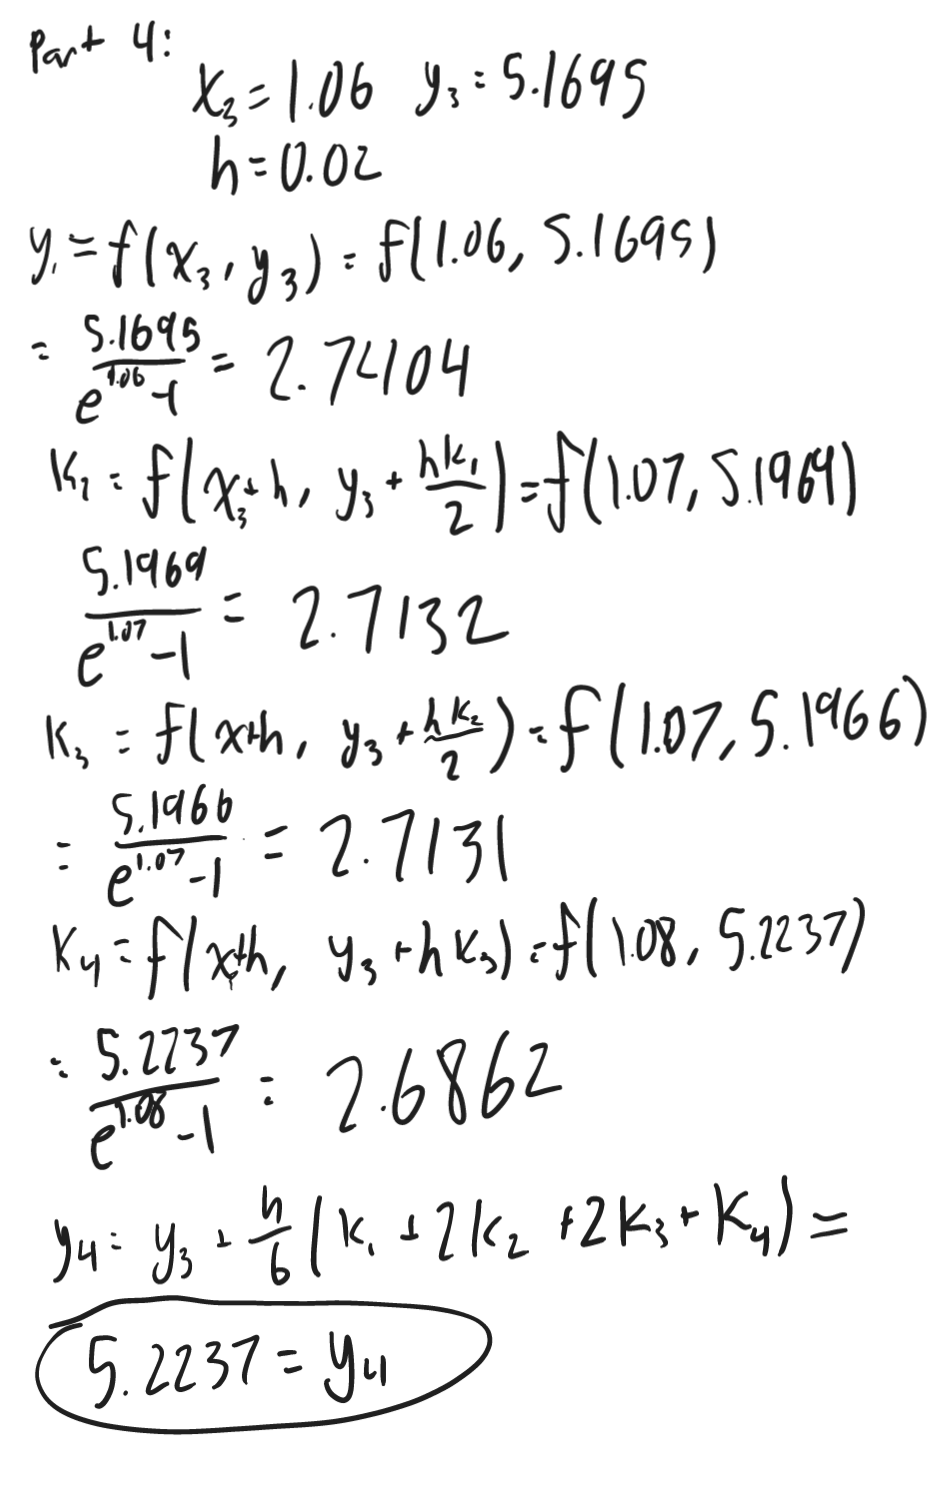 Part 4:
x₃ = 1.06 y₃ = 5.1695
h = 0.02
y₁ = f(x₃, y₃) = f(1.06, 5.1695)
= 5.1695/(e^1.06 - 1) = 2.74104
K₂ = f(x₃+h, y₃ + hk₁/2) = f(1.07, 5.1969)
5.1969/(e^1.07 - 1) = 2.7132
K₃ = f(x+h, y₃ + hk₂/2) = f(1.07, 5.1966)
= 5.1966/(e^1.07 - 1) = 2.7131
K₄ = f(x+h, y₃ + hK₃) = f(1.08, 5.2237)
= 5.2237/(e^1.08 - 1) = 2.6862
y₄ = y₃ + h/6 (k₁ + 2k₂ + 2K₃ + K₄) =
5.2237 = y₄